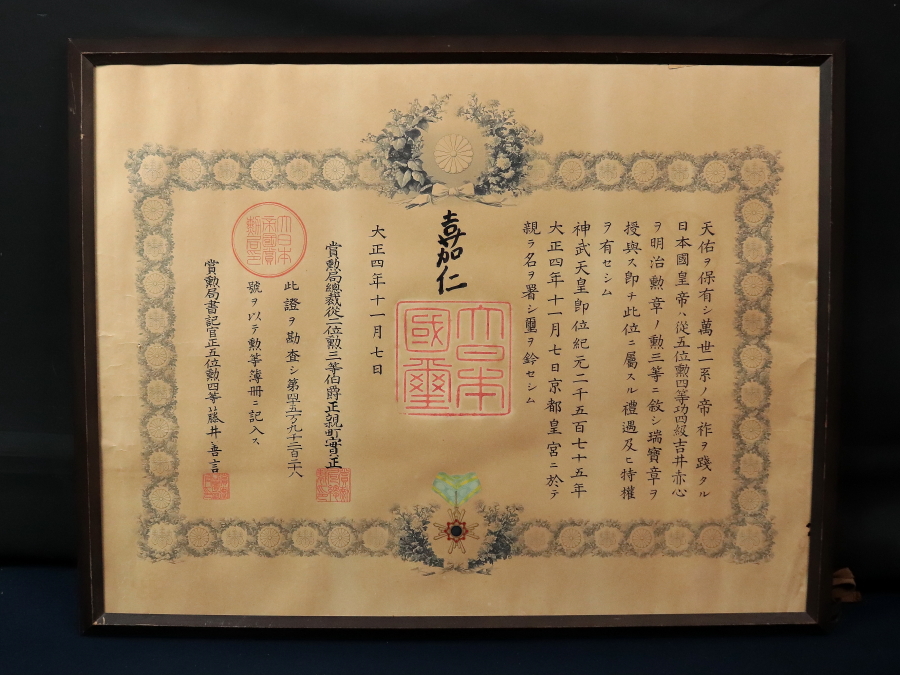 天佑ヲ保有シ萬世一系ノ帝祚ヲ踐タル
日本國皇帝ハ從五位勲四等功四級吉井赤心
ヲ明治勲章ノ勲三等ニ敘シ瑞寶章ヲ
授與ス即チ此位ニ屬スル禮遇及ヒ特權
ヲ有セシム
神武天皇即位紀元二千五百七十五年
大正四年十一月七日京都皇宮ニ於テ
親ラ名ヲ署シ璽ヲ鈐セシム
嘉仁
大日本國璽
大正四年十一月七日
賞勲局總裁從二位勲三等伯爵正親町實正
此證ヲ勘査シ第四五万九千二百三十八
號ヲ以テ勲等簿册ニ記入ス
大日本帝國賞勲局印
賞勲局書記官正五位勲四等藤井善言